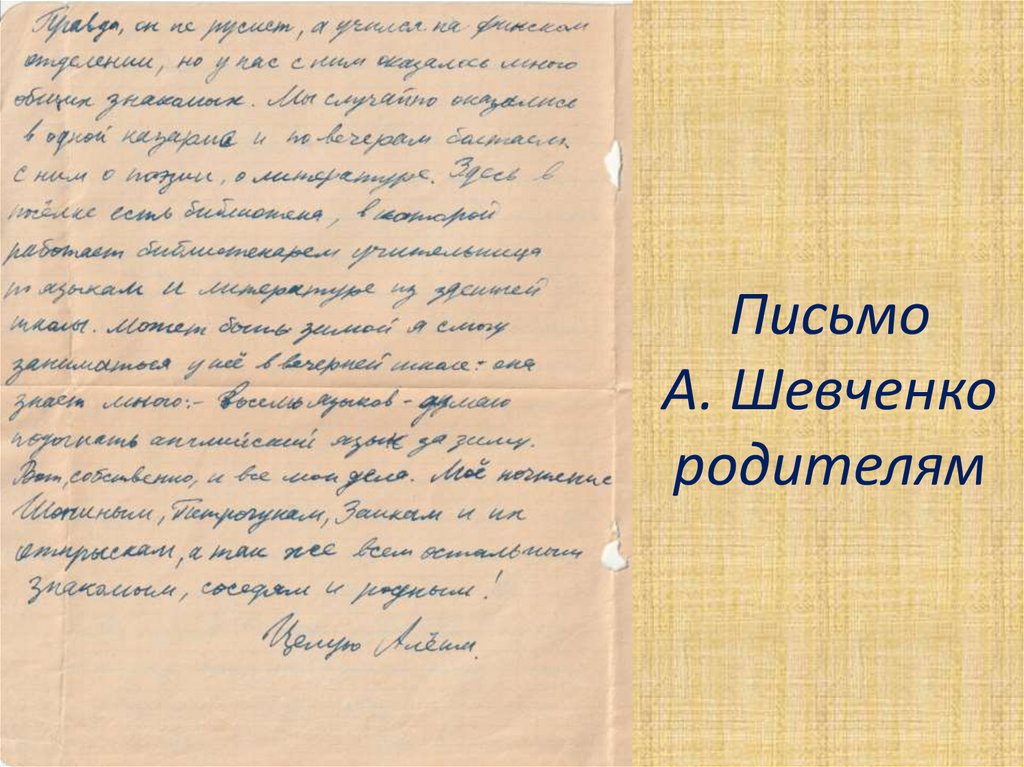 Правда, он не русист, а учился на финском
отделении, но у нас с ним оказалось много
общих знакомых. Мы случайно оказались
в одной казарме и по вечерам болтаем
с ним о поэзии, о литературе. Здесь в
посёлке есть библиотека, в которой
работает библиотекарем учительница
по языкам и литературе из здешней
школы. Может быть зимой я смогу
заниматься у неё в вечерней школе: она
знает много:- восемь языков - думаю
подогнать английский язык за зиму.
Вот, собственно, и все мои дела. Моё почтение
Шониным, Петрочукам, Заикам и их
отпрыскам, а так же всем остальным
знакомым, соседям и родным!
Целую Алёша.
Письмо
А. Шевченко
родителям